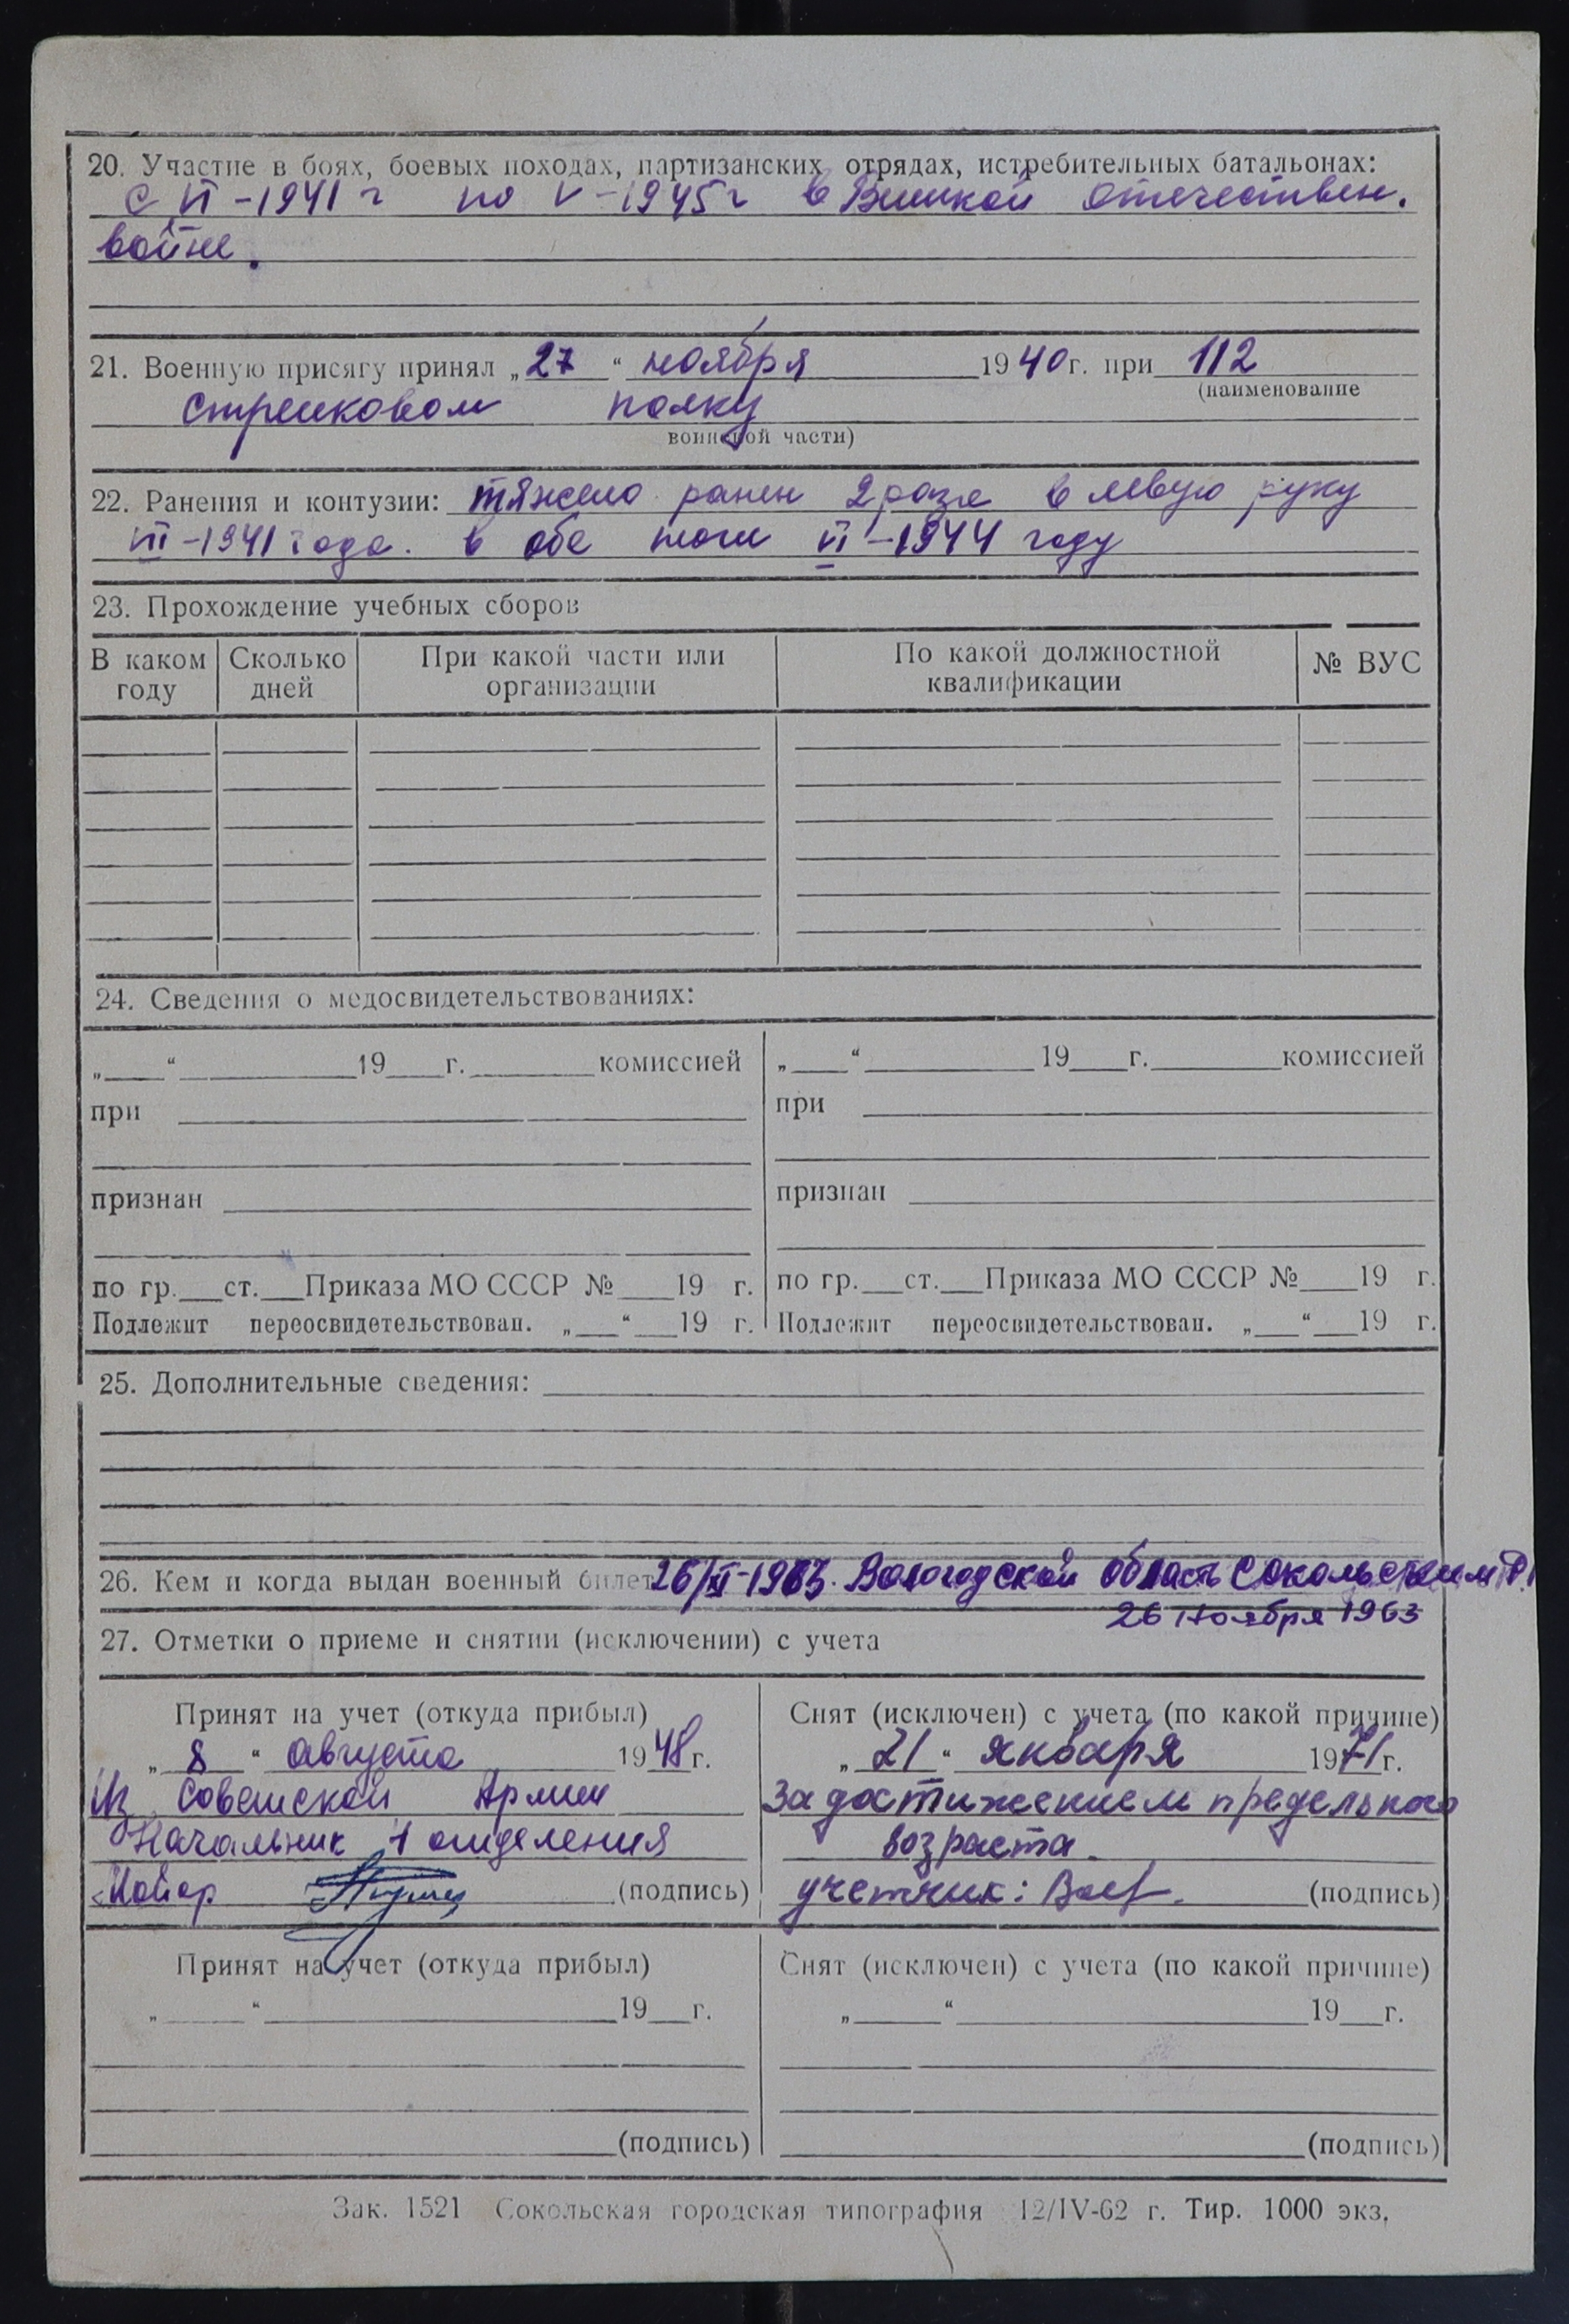 20. Участие в боях, боевых походах, партизанских отрядах, истребительных батальонах:
с VI-1941 г по V-1945 г в Великой отечествен.
войне.
21. Военную присягу принял „27“ ноября 1940 г. при 112
(наименование
стрелковом полку
воинской части)
22. Ранения и контузии: тяжело ранен 2 раза в левую руку
VIII-1941 года. в обе ноги VI-1944 году
23. Прохождение учебных сборов
В каком году Сколько дней При какой части или организации По какой должностной квалификации № ВУС
24. Сведения о медосвидетельствованиях:
„ “ 19 г. комиссией
при
признан
по гр. ст. Приказа МО СССР № 19 г.
Подлежит переосвидетельствован. „ “ 19 г.
„ “ 19 г. комиссией
при
признан
по гр. ст. Приказа МО СССР № 19 г.
Подлежит переосвидетельствован. „ “ 19 г.
25. Дополнительные сведения:
26. Кем и когда выдан военный билет 26/XI-1963. Вологодской область Сокольским Р.
26 ноября 1963
27. Отметки о приеме и снятии (исключении) с учета
Принят на учет (откуда прибыл)
„8“ августа 1948 г.
Из Советской Армии
Начальник 1 отделения
Майор (подпись)
Снят (исключен) с учета (по какой причине)
„21“ января 1971 г.
За достижением предельного
возраста.
учетчик: (подпись)
Принят на учет (откуда прибыл)
„ “ 19 г.
(подпись)
Снят (исключен) с учета (по какой причине)
„ “ 19 г.
(подпись)
Зак. 1521 Сокольская городская типография 12/IV-62 г. Тир. 1000 экз.